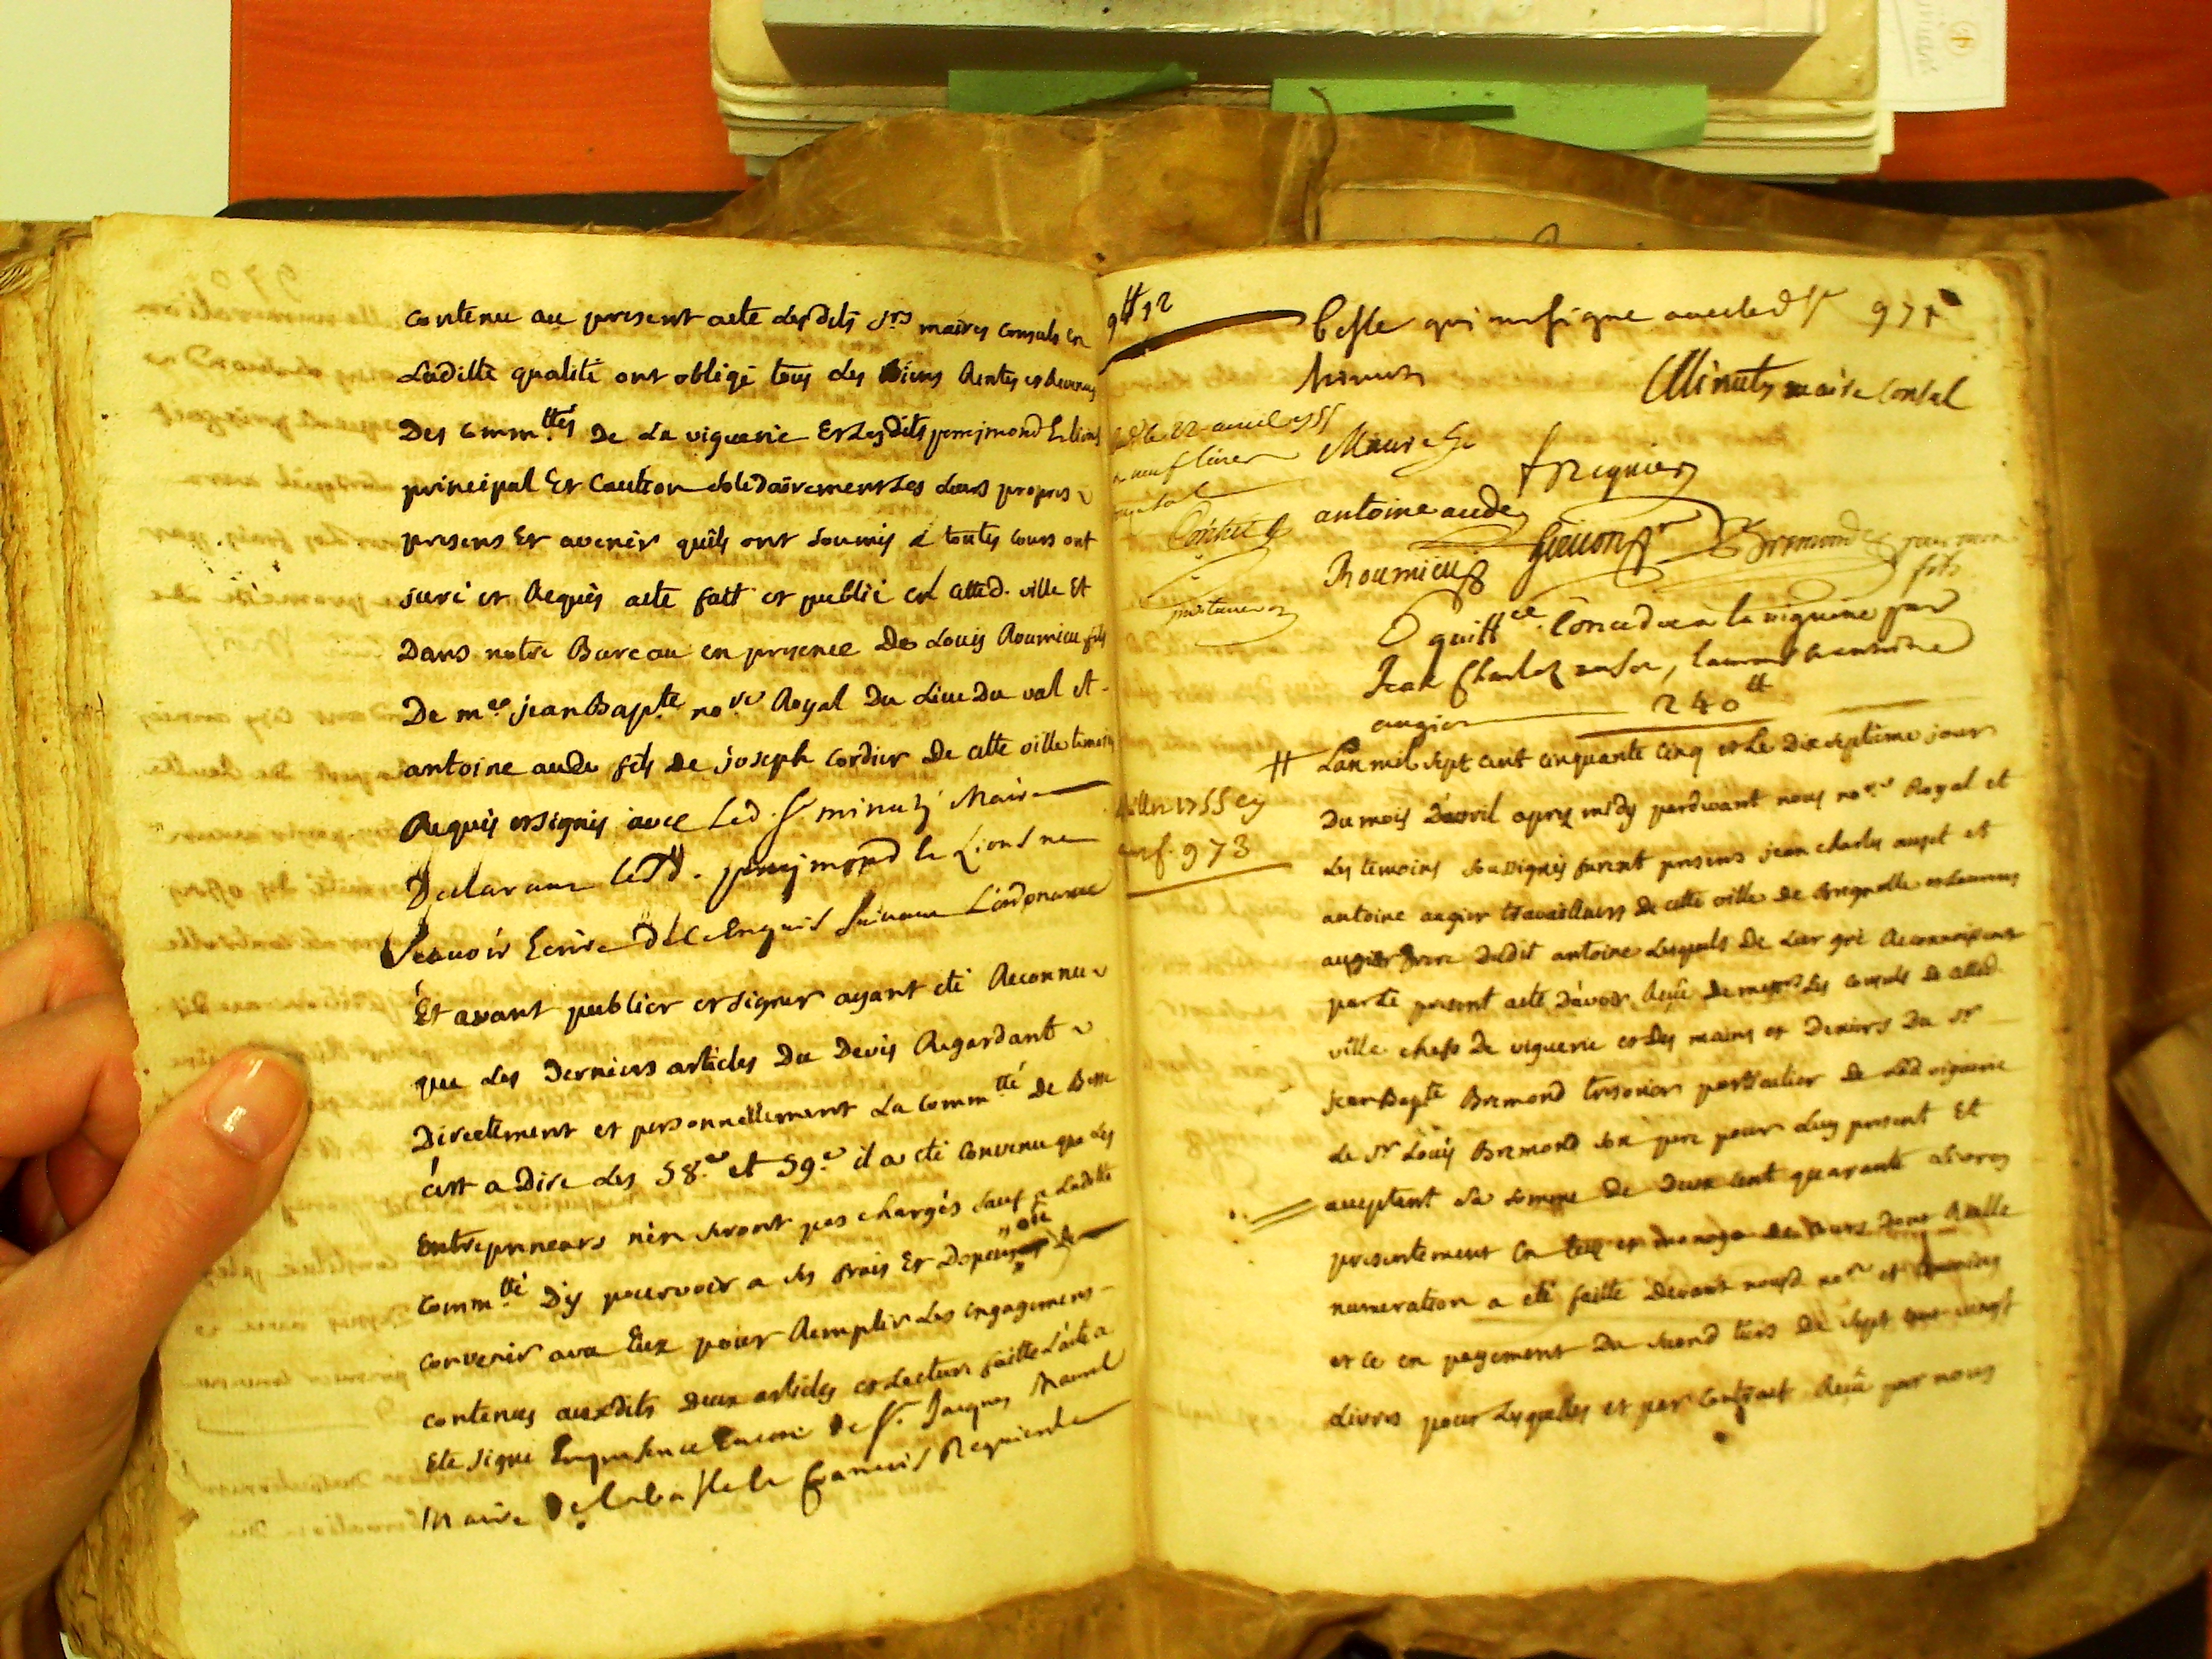 contenu au present acte lesdits srs maires consuls en
Laditte qualité ont obligé tous les biens Rentes et Revenus
Des Commttés De La viguerie Et Lesdits
principal Et Caution solidairement les Leurs propres
presens Et avenir quils ont soumis a toutes cours ont
juré et Requis acte fait et publié en cetted. ville Et
Dans notre Bureau en presence De Louis Roumieu fils
De me jean Bapte nore Royal Du Lieu Du val et
antoine aude fils De joseph cordier De cette ville temoins
Requis et signés avec Led. Sr minuty Maire
Declarant
scavoir Ecrire De ce Enquis suivant L'ordonance
Et avant publier et signer ayant eté Reconnu
que Les Derniers articles Du Devis Regardant
Directement et personnellement La Commtté De Besse
c'est a Dire Les 58.e et 59.e il a eté Convenu que Les
Entrepreneurs n'en seront pas chargés sauf a Laditte
Commtté D'y pourvoir a ses frais Et Depens ou
convenir avec Eux pour Remplir Les engagemens
contenus auxdits Deux articles et Lecture faitte L'acte a
Eté signé En presence Encore De Sr. Jacques Maurel
Maire De francois Requier
971
Besse qui ont signé avec led Sr
minuty
Minuty maire Consul
le 22 avril 1755
neuf livres
Maurel
f requier
antoine aude
Roumieu
Bremond
fils
quittce Concedée a la viguerie par
Jean Charles , laurens et antoine
augier 240tt
1755
f. 973
L'an mil sept cent cinquante cinq et Le Dix septieme jour
Du mois D'avril apres midy pardevant nous nore Royal et
Les temoins soussignés furent presens jean charles et
antoine augier travailleurs De cette ville De Brignolle et Laurens
augier frere Dudit antoine Lesquels De Leur gré Reconnoissent
par le present acte D'avoir Reçû De messrs Les consuls De cetted.
ville chefs De viguerie et Des mains et Deniers Du sr
jean Bapte Bremond tresorier particulier De Lad viguerie
Le sr Louis Bremond son pere pour Luy present Et
acceptant La somme De Deux cent quarante Livres
presentement en et monoye De cours Dont Reelle
numeration a eté faitte Devant nousd. nore et temoins
et ce en payement Du second tiers De sept cent vingt
Livres pour Lesquelles et par Contract Reçû par nous